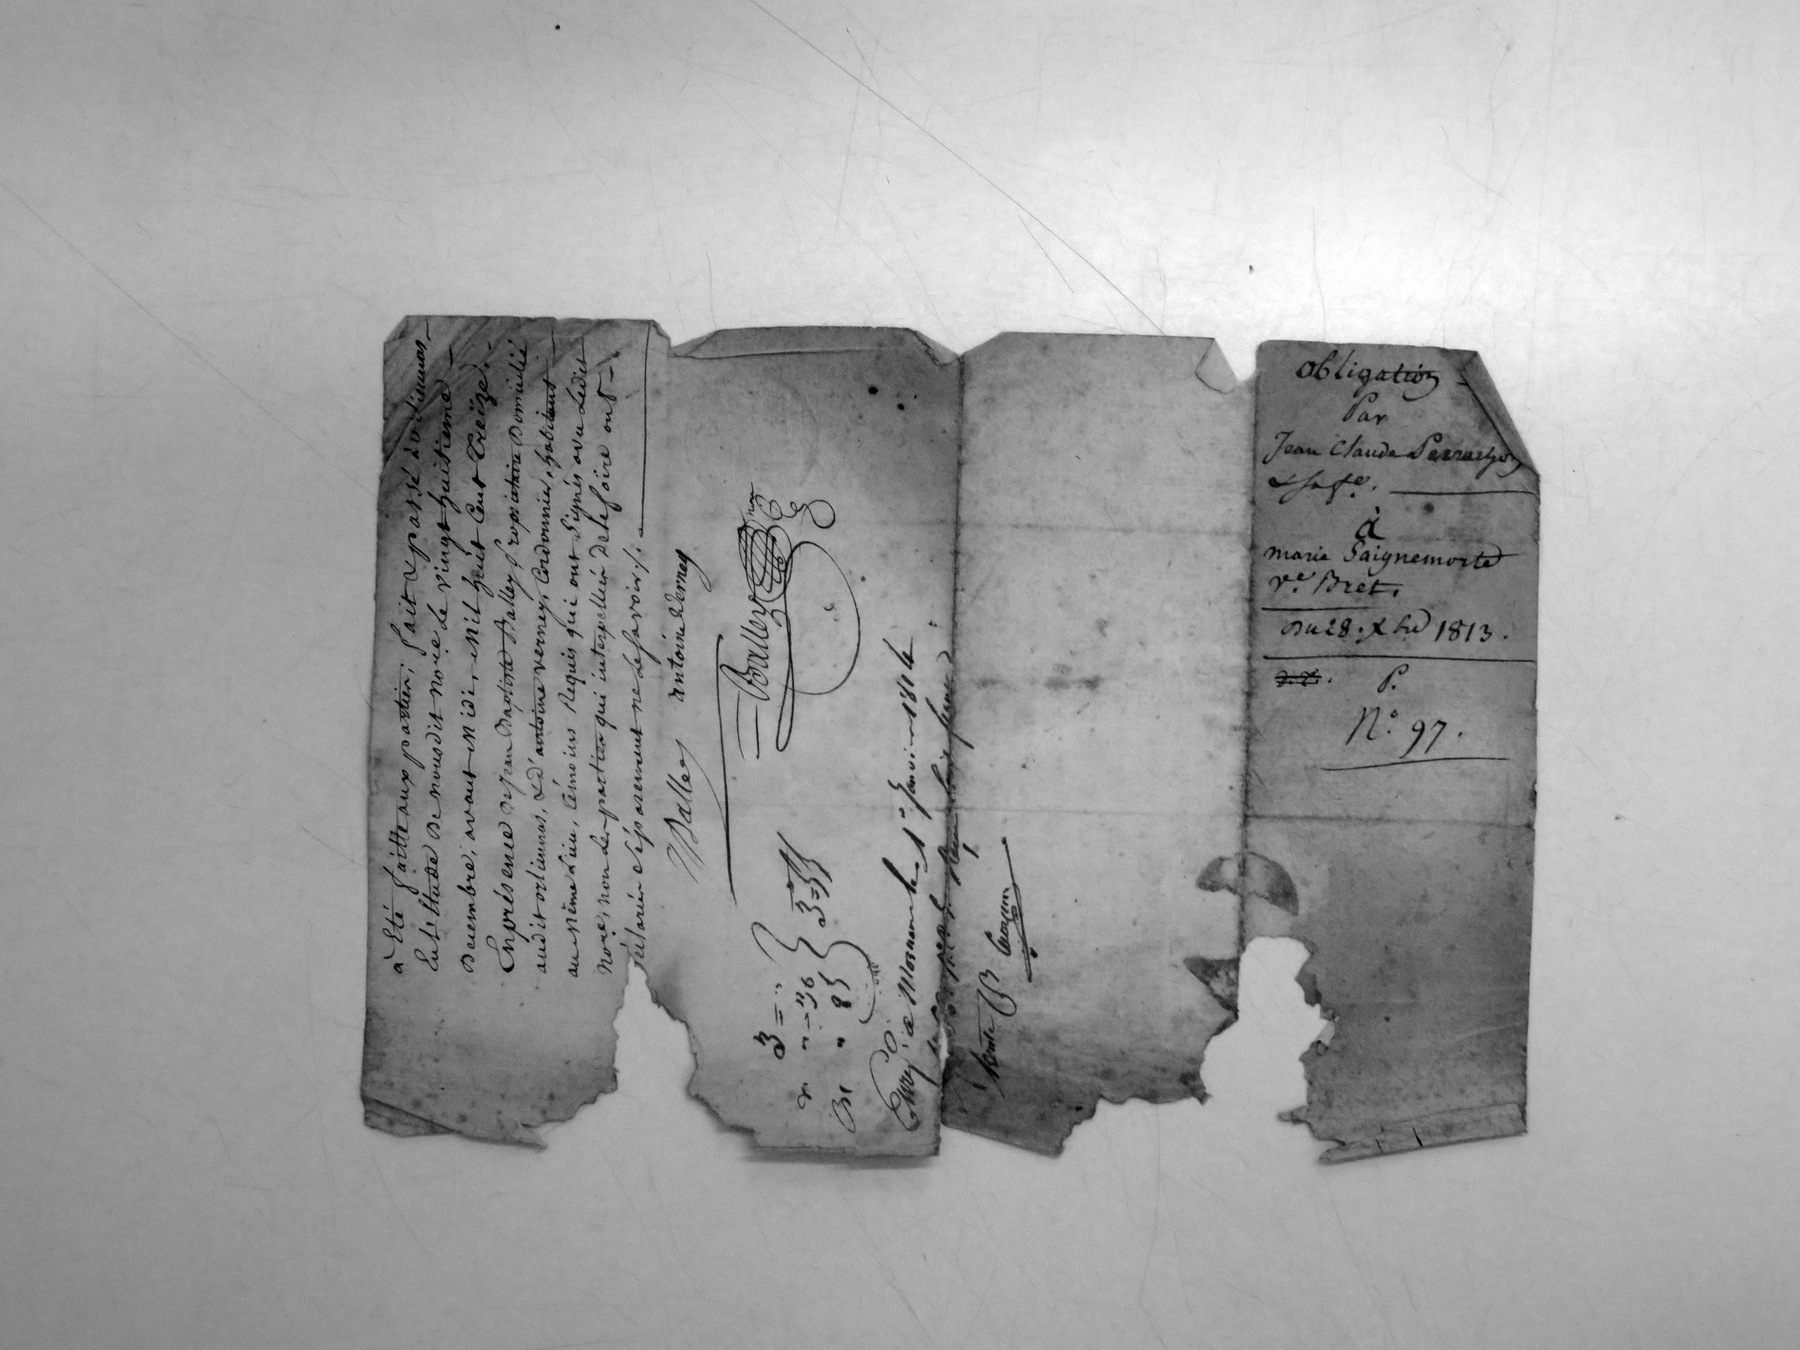 à Eté faitte aux parties; fait & passé à orlienas
En l'Etude de nousdit no.re le vingt huitieme
Decembre, avant midi, mil huit Cent Treize.
En présence de jean Baptiste Balley propriétaire Domicilié
audit orlienas, & d'antoine verney, Cordonnier, habitant
au même Lieu, témoins Requis qui ont Signés avec Ledit
no.re, non les parties qui interpellées de le faire ont
déclarées séparement ne le savoir./.
Balley antoine Verney
Balley no.re
3 = "
" - 36
" 85
Enreg.é à Mornant le 1er Janvier 1814
Obligation
Par
Jean Claude Perrachon
& sa fe.
à
marie Saignemorte
ve. Bret.
Du 28. Xbre 1813.
P.
N.o 97.